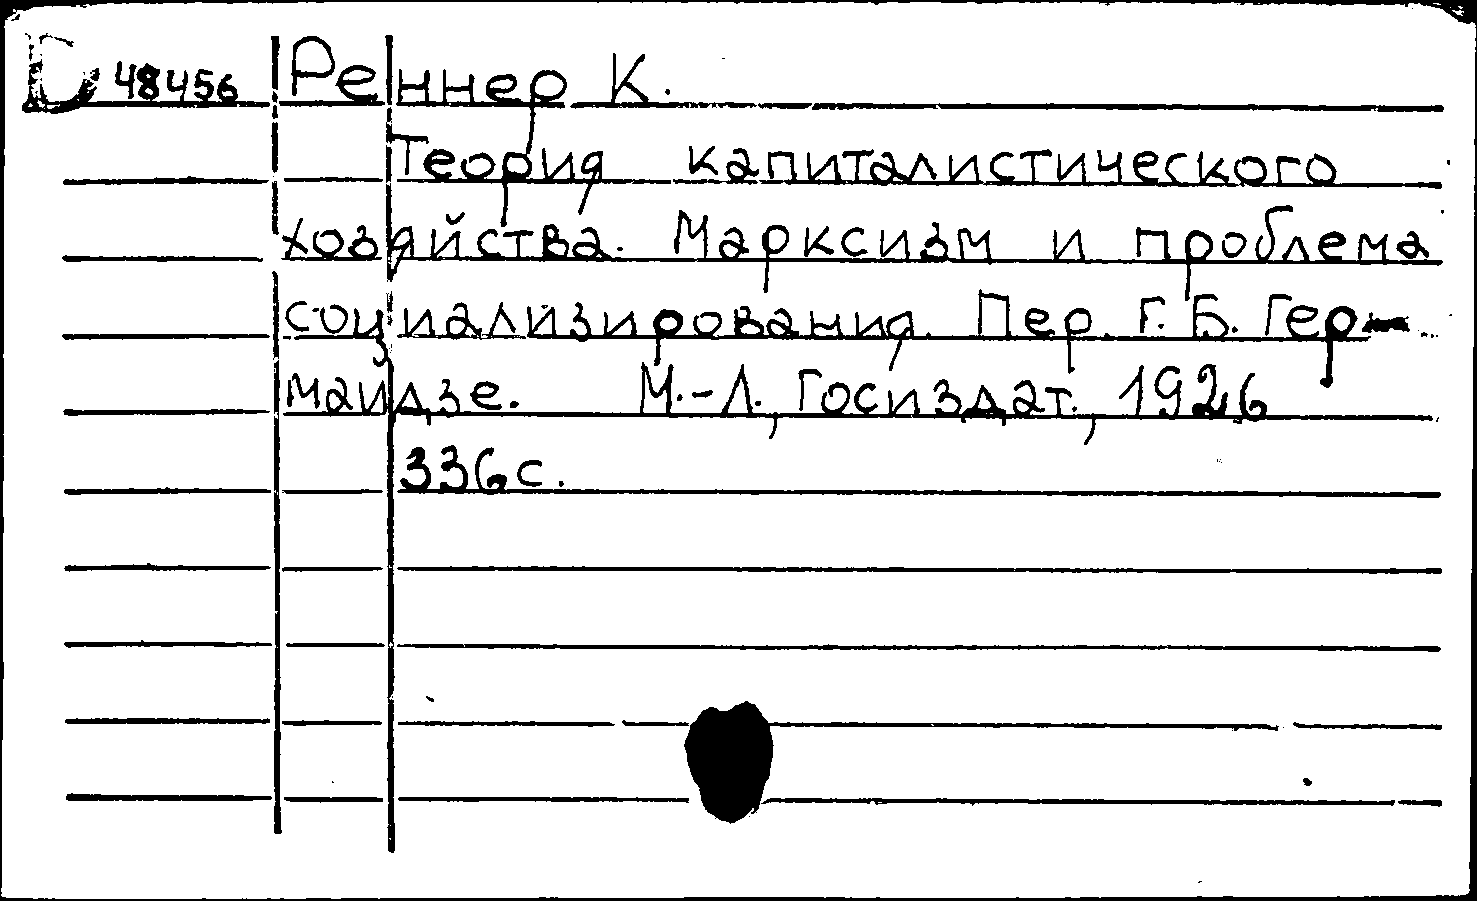 D 48456 Реннер К.
Теория капиталистического
хозяйства. Марксизм и проблема
социализирования. Пер. Г. Б. Гер-
маидзе. М.-Л., Госиздат., 1926
336 с.